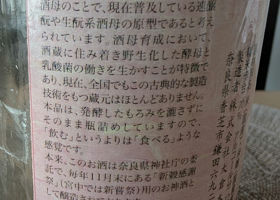 母のことで、現在普及している速醸
酛や生酛系酒母の原型であると考え
られています。酒母育成において、
酒蔵に住み着き野生化した酵母と
乳酸菌の働きを生かすことが特徴で
あり、現在、全国でもこの古典的な製造
技術をもつ蔵元はほとんどありません。
本品は、発酵したもろみを漉さずに
そのまま瓶詰めしていますので、
「飲む」というよりは「食べる」ような
感覚です。
本来、このお酒は奈良県神社庁の委
託で、毎年11月末にある「新穀感謝
祭」(宮中では新嘗祭)用のお神酒と
して醸造さ
製造者 株式会社大倉
奈良県香芝市鎌田六九